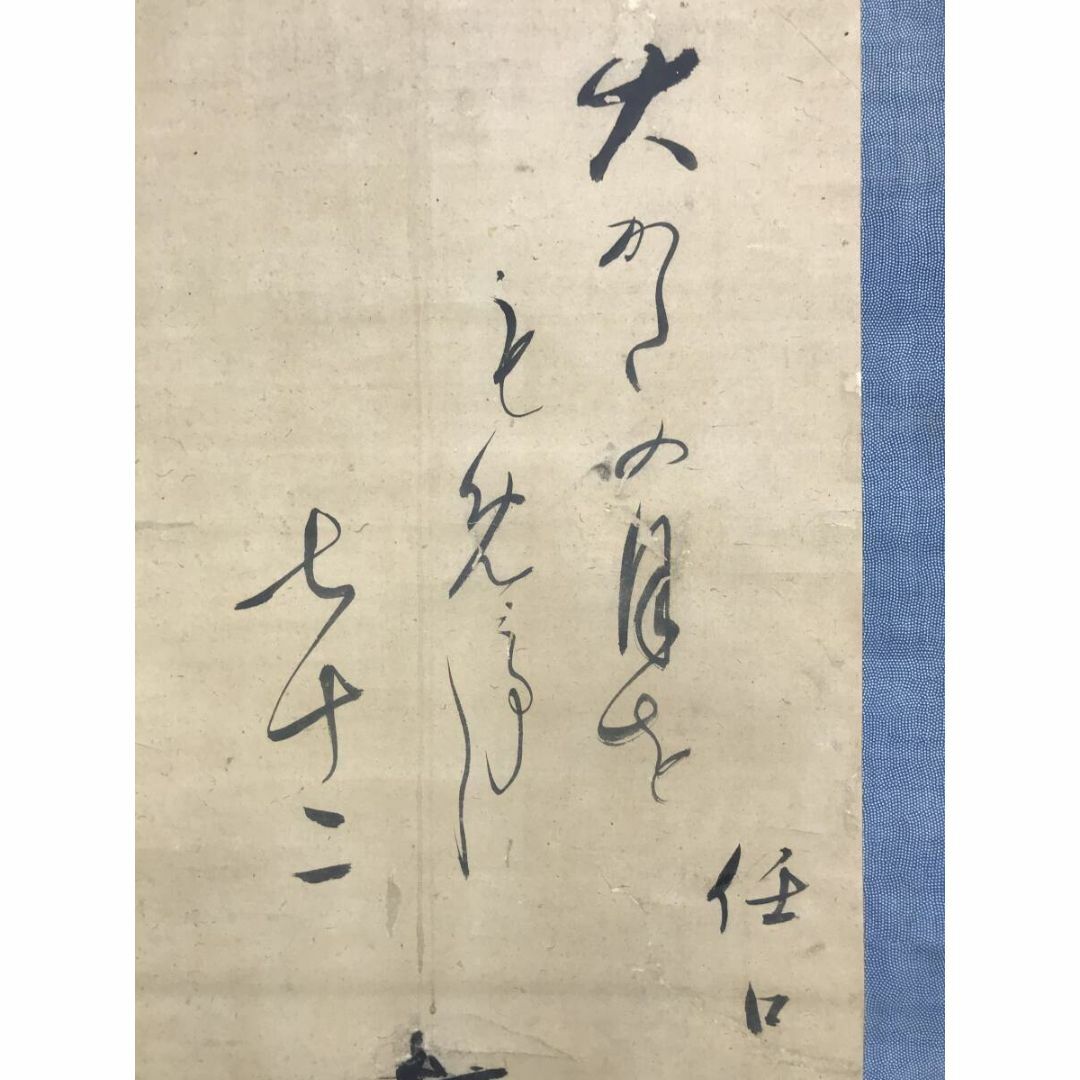 任口
大かたの月を
もめてし
七十二